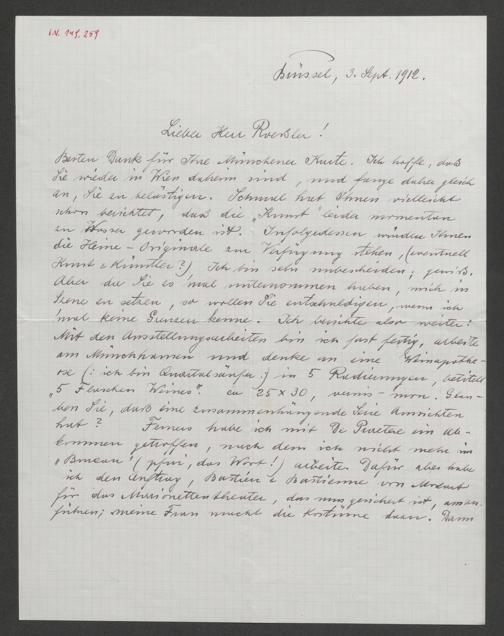 I.N. 149.259
Brüssel, 3. Sept. 1912.
Lieber Herr Roessler!
Besten Dank für Ihre Münchener Karte. Ich hoffe, daß
Sie wieder in Wien daheim sind, und fange daher gleich
an, Sie zu belästigen. hat Ihnen vielleicht
schon berichtet, daß die „Kunst“ leider momentan
zu Wasser geworden ist. Infolgedessen würden Ihnen
die Heine-Originale zur Verfügung stehen, (eventuell
Kunst & Künstler?) Ich bin sehr unbescheiden; gewiß.
Aber da Sie es 'mal unternommen haben, mich in
Scene zu setzen, so wollen Sie entschuldigen, wenn ich
'mal keine Grenzen kenne. Ich berichte also weiter:
Mit den Ausstellungsarbeiten bin ich fast fertig, arbeite
am Münchhausen und denke an eine Weinapothe-
ose (: ich bin Quartalsäufer :) in 5 Radierungen, betitelt
„5 Flaschen Weines“. ca 25 x 30, vernis-mou. Glau-
ben Sie, daß eine zusammenhängende Serie Aussichten
hat? Ferners habe ich mit De ein Ab-
kommen getroffen, nach dem ich nicht mehr im
„Bureau“ (pfui, das Wort!) arbeite. Dafür aber habe
ich den Auftrag, Bastien & Bastienne von Mozart
für das Marionettentheater, das nun gesichert ist, auszu-
führen; meine Frau macht die Kostüme dazu. Dann